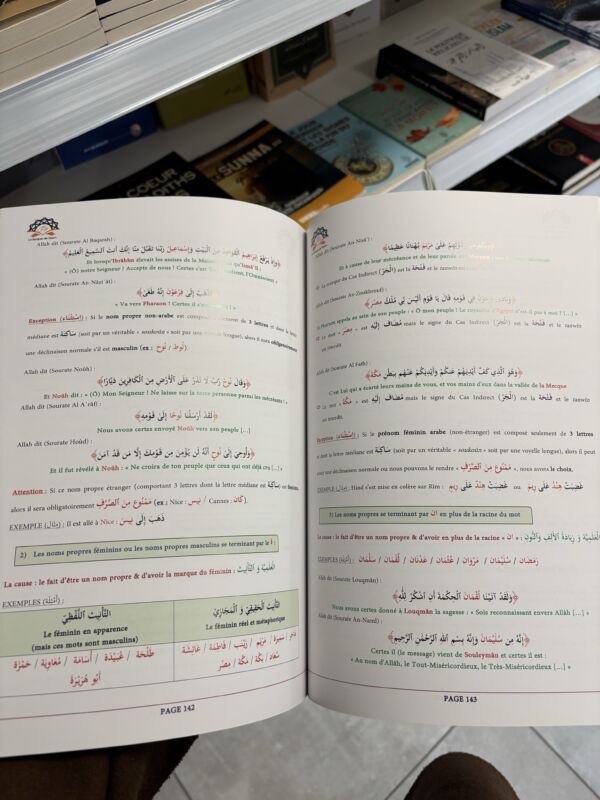 COEUR
SUNNA
Allah dit (Sourate Al Baqarah) :
﴿وَإِذْ يَرْفَعُ إِبْرَاهِيمُ الْقَوَاعِدَ مِنَ الْبَيْتِ وَإِسْمَاعِيلُ رَبَّنَا تَقَبَّلْ مِنَّا إِنَّكَ أَنتَ السَّمِيعُ الْعَلِيمُ﴾
Et lorsqu'Ibrâhîm élevait les assises de la Maison
« (Ô) notre Seigneur ! Accepte de nous ! Certes c'est
Allah dit (Sourate An-Nâzi'ât) :
اذْهَبْ إِلَى فِرْعَوْنَ إِنَّهُ طَغَى﴾
« Va vers Pharaon ! Certes il
Exception (إِسْتِثْنَاء) : Si le nom propre non-arabe est composé seulement de 3 lettres et dont la lettre
médiane est سَاكِنَة (soit par un véritable « soukoûn » soit par une voyelle longue), alors il suit obligatoirement
une déclinaison normale s'il est masculin (ex : نُوح / لُوط)
Allah dit (Sourate Noûh) :
﴿وَقَالَ نُوحٌ رَّبِّ لَا تَذَرْ عَلَى الْأَرْضِ مِنَ الْكَافِرِينَ دَيَّارًا﴾
Et Noûh dit : « (Ô) Mon Seigneur ! Ne laisse sur la terre personne parmi les mécréants ! »
Allah dit (Sourate Al A'râf) :
﴿لَقَدْ أَرْسَلْنَا نُوحًا إِلَى قَوْمِهِ﴾
Nous avons certes envoyé Noûh vers son peuple [...]
Allah dit (Sourate Hoûd) :
﴿وَأُوحِيَ إِلَى نُوحٍ أَنَّهُ لَن يُؤْمِنَ مِن قَوْمِكَ إِلَّا مَن قَدْ آمَنَ﴾
Et il fut révélé à Noûh : « Ne croira de ton peuple que ceux qui ont déjà cru [...] »
Attention : Si ce nom propre étranger (comportant 3 lettres dont la lettre médiane est سَاكِنَة) est féminin,
alors il sera obligatoirement مَمْنُوعٌ مِنَ الصَّرْفِ (ex : Nice : نِيس / Cannes : كَان).
EXEMPLE (مِثَال) : Il est allé à Nice : ذَهَبَ إِلَى نِيسَ
2) Les noms propres féminins ou les noms propres masculins se terminant par le ة :
La cause : le fait d'être un nom propre & d'avoir la marque du féminin : الْعَلَمِيَّة وَ التَّأْنِيث
EXEMPLES (أَمْثِلَة) :
التَّأْنِيث اللَّفْظِيّ
Le féminin en apparence
(mais ces mots sont masculins)
طَلْحَة / عُبَيْدَة / أُسَامَة / مُعَاوِيَة / حَمْزَة
أَبُو هُرَيْرَةَ
التَّأْنِيث الْحَقِيقِيّ وَ الْمَجَازِيّ
Le féminin réel et métaphorique
مَرْيَم / زَيْنَب / فَاطِمَة / عَائِشَة
سُعَاد / بَكَّة / مَكَّة / مِصْر
PAGE 142
Allah dit (Sourate An-Nisâ') :
قَوْلِهِمْ عَلَى مَرْيَمَ بُهْتَانًا عَظِيمًا﴾
Et à cause de leur mécréance et de leur parole
Allah dit (Sourate Az-Zoukhrouf) :
فِي قَوْمِهِ قَالَ يَا قَوْمِ أَلَيْسَ لِي مُلْكُ مِصْرَ﴾
Et Pharaon appela au sein de son peuple : « Ô mon peuple ! Le royaume d'Égypte n'est-il pas à moi ? [...] »
مِصْرَ » est مُضَاف إِلَيْهِ mais le signe du Cas Indirect (الْجَرّ) est la فَتْحَة et le tanwîn
est interdit.
Allah dit (Sourate Al Fath) :
﴿وَهُوَ الَّذِي كَفَّ أَيْدِيَهُمْ عَنكُمْ وَأَيْدِيَكُمْ عَنْهُم بِبَطْنِ مَكَّةَ﴾
C'est Lui qui a écarté leurs mains de vous, et vos mains d'eux dans la vallée de la Mecque
« مَكَّةَ » est مُضَاف إِلَيْهِ mais le signe du Cas Indirect (الْجَرّ) est la فَتْحَة et le tanwîn
est interdit.
Exception (إِسْتِثْنَاء) : Si le prénom féminin arabe (non-étranger) est composé seulement de 3 lettres
et dont la lettre médiane est سَاكِنَة (soit par un véritable « soukoûn » soit par une voyelle longue), alors il peut
avoir une déclinaison normale ou nous pouvons le rendre « مَمْنُوعٌ مِنَ الصَّرْفِ », nous avons le choix.
EXEMPLE (مِثَال) : Hind s'est mise en colère sur Rîm : غَضِبَتْ هِنْدُ عَلَى رِيمَ ou غَضِبَتْ هِنْدٌ عَلَى رِيمٍ
3) Les noms propres se terminant par ان en plus de la racine du mot
La cause : le fait d'être un nom propre & d'avoir en plus de la racine « ان » : الْعَلَمِيَّة وَ زِيَادَةُ الْأَلِفِ وَالنُّونِ
EXEMPLES (أَمْثِلَة) : رَمَضَان / سُلَيْمَان / مَرْوَان / عُثْمَان / عَدْنَان / لُقْمَان / سَلْمَان
Allah dit (Sourate Louqmân) :
﴿وَلَقَدْ آتَيْنَا لُقْمَانَ الْحِكْمَةَ أَنِ اشْكُرْ لِلَّهِ﴾
Nous avons certes donné à Louqmân la sagesse : « Sois reconnaissant envers Allâh [...]
Allah dit (Sourate An-Naml) :
﴿إِنَّهُ مِن سُلَيْمَانَ وَإِنَّهُ بِسْمِ اللَّهِ الرَّحْمَنِ الرَّحِيمِ﴾
Certes il (le message) vient de Souleymân et certes il est :
« Au nom d'Allâh, le Tout-Miséricordieux, le Très-Miséricordieux [...] »
PAGE 143